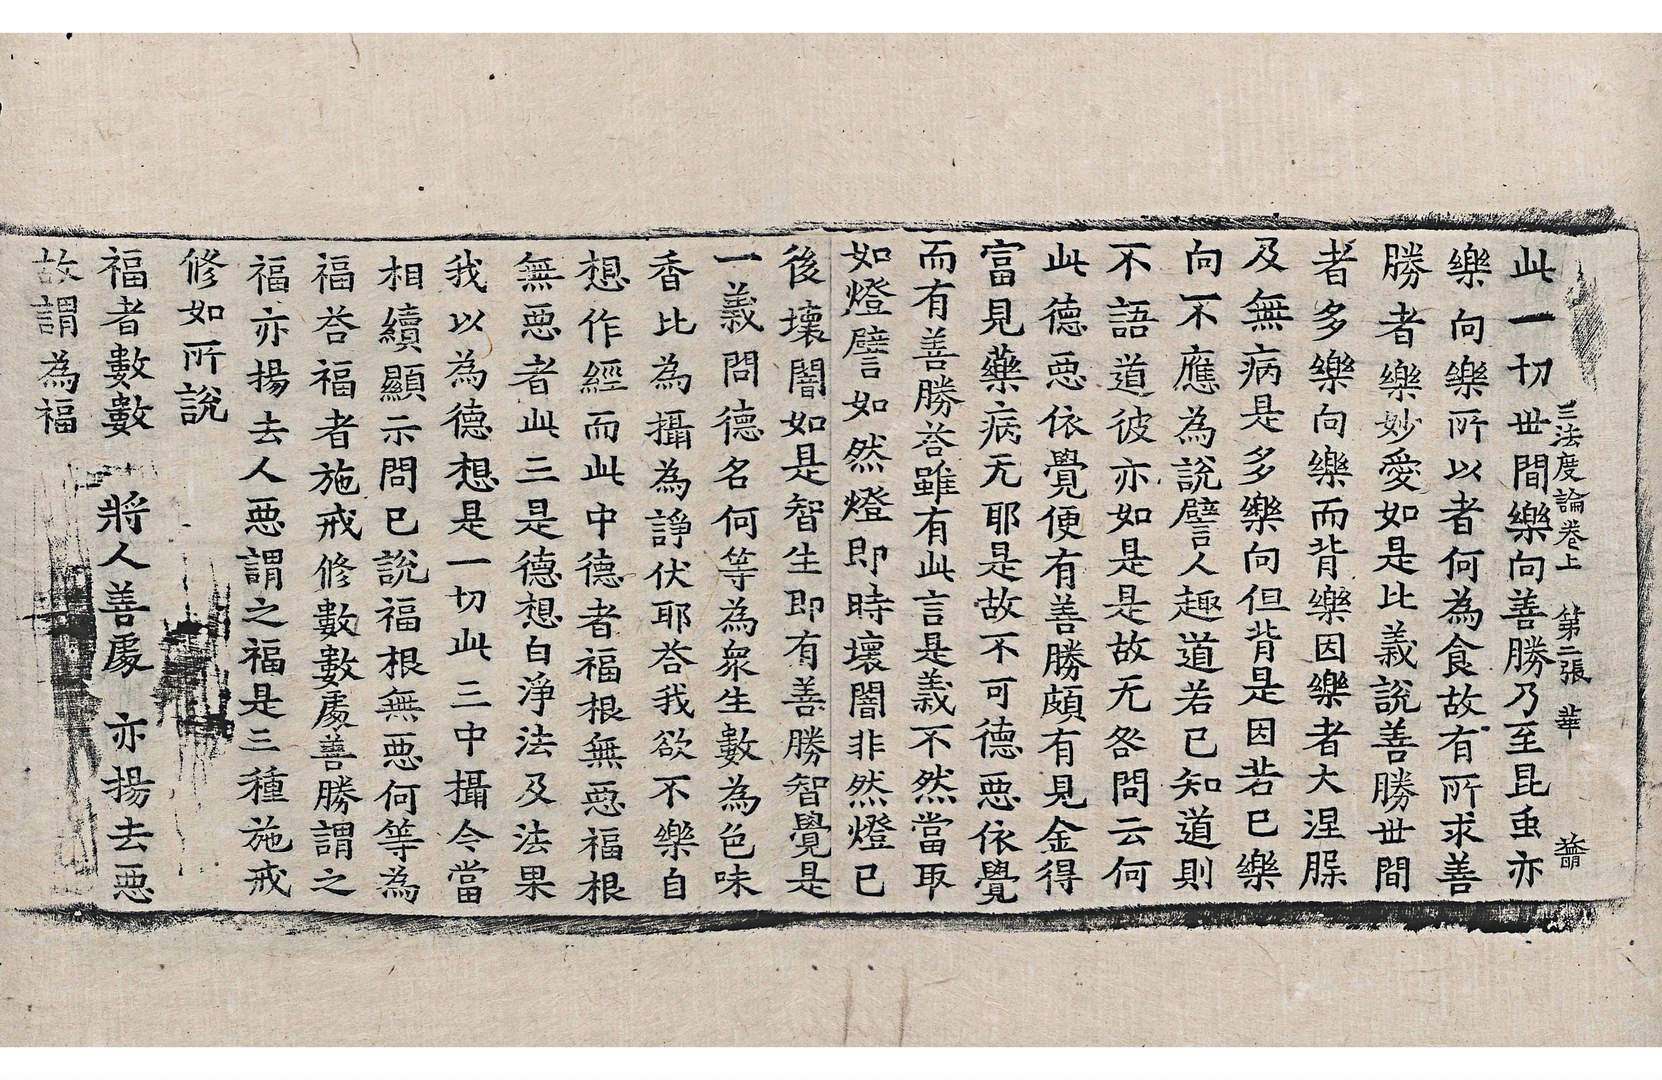 三法度論卷上 第二張 華
此一切世間樂向善勝乃至昆虫亦
樂向樂所以者何為食故有所求善
勝者樂妙愛如是比義說善勝世間
者多樂向樂而背樂因樂者大涅槃
及無病是多樂向但背是因若已樂
向不應為說譬人趣道若已知道則
不語道彼亦如是是故无咎問云何
此德惡依覺便有善勝頗有見金得
富見藥病无耶是故不可德惡依覺
而有善勝荅雖有此言是義不然當取
如燈譬言如然燈即時壞闇非然燈已
後壞闇如是智生即有善勝智覺是
一義問德名何等為衆生數為色味
香比為攝為諍伏耶荅我欲不樂自
想作經而此中德者福根無惡福根
無惡者此三是德想白淨法及法果
我以為德想是一切此三中攝今當
相續顯示問已說福根無惡何等為
福荅福者施戒修數數䖏善勝謂之
福亦揚去人惡謂之福是三種施戒
修如所說
福者數數 將人善䖏 亦揚去惡
故謂為福